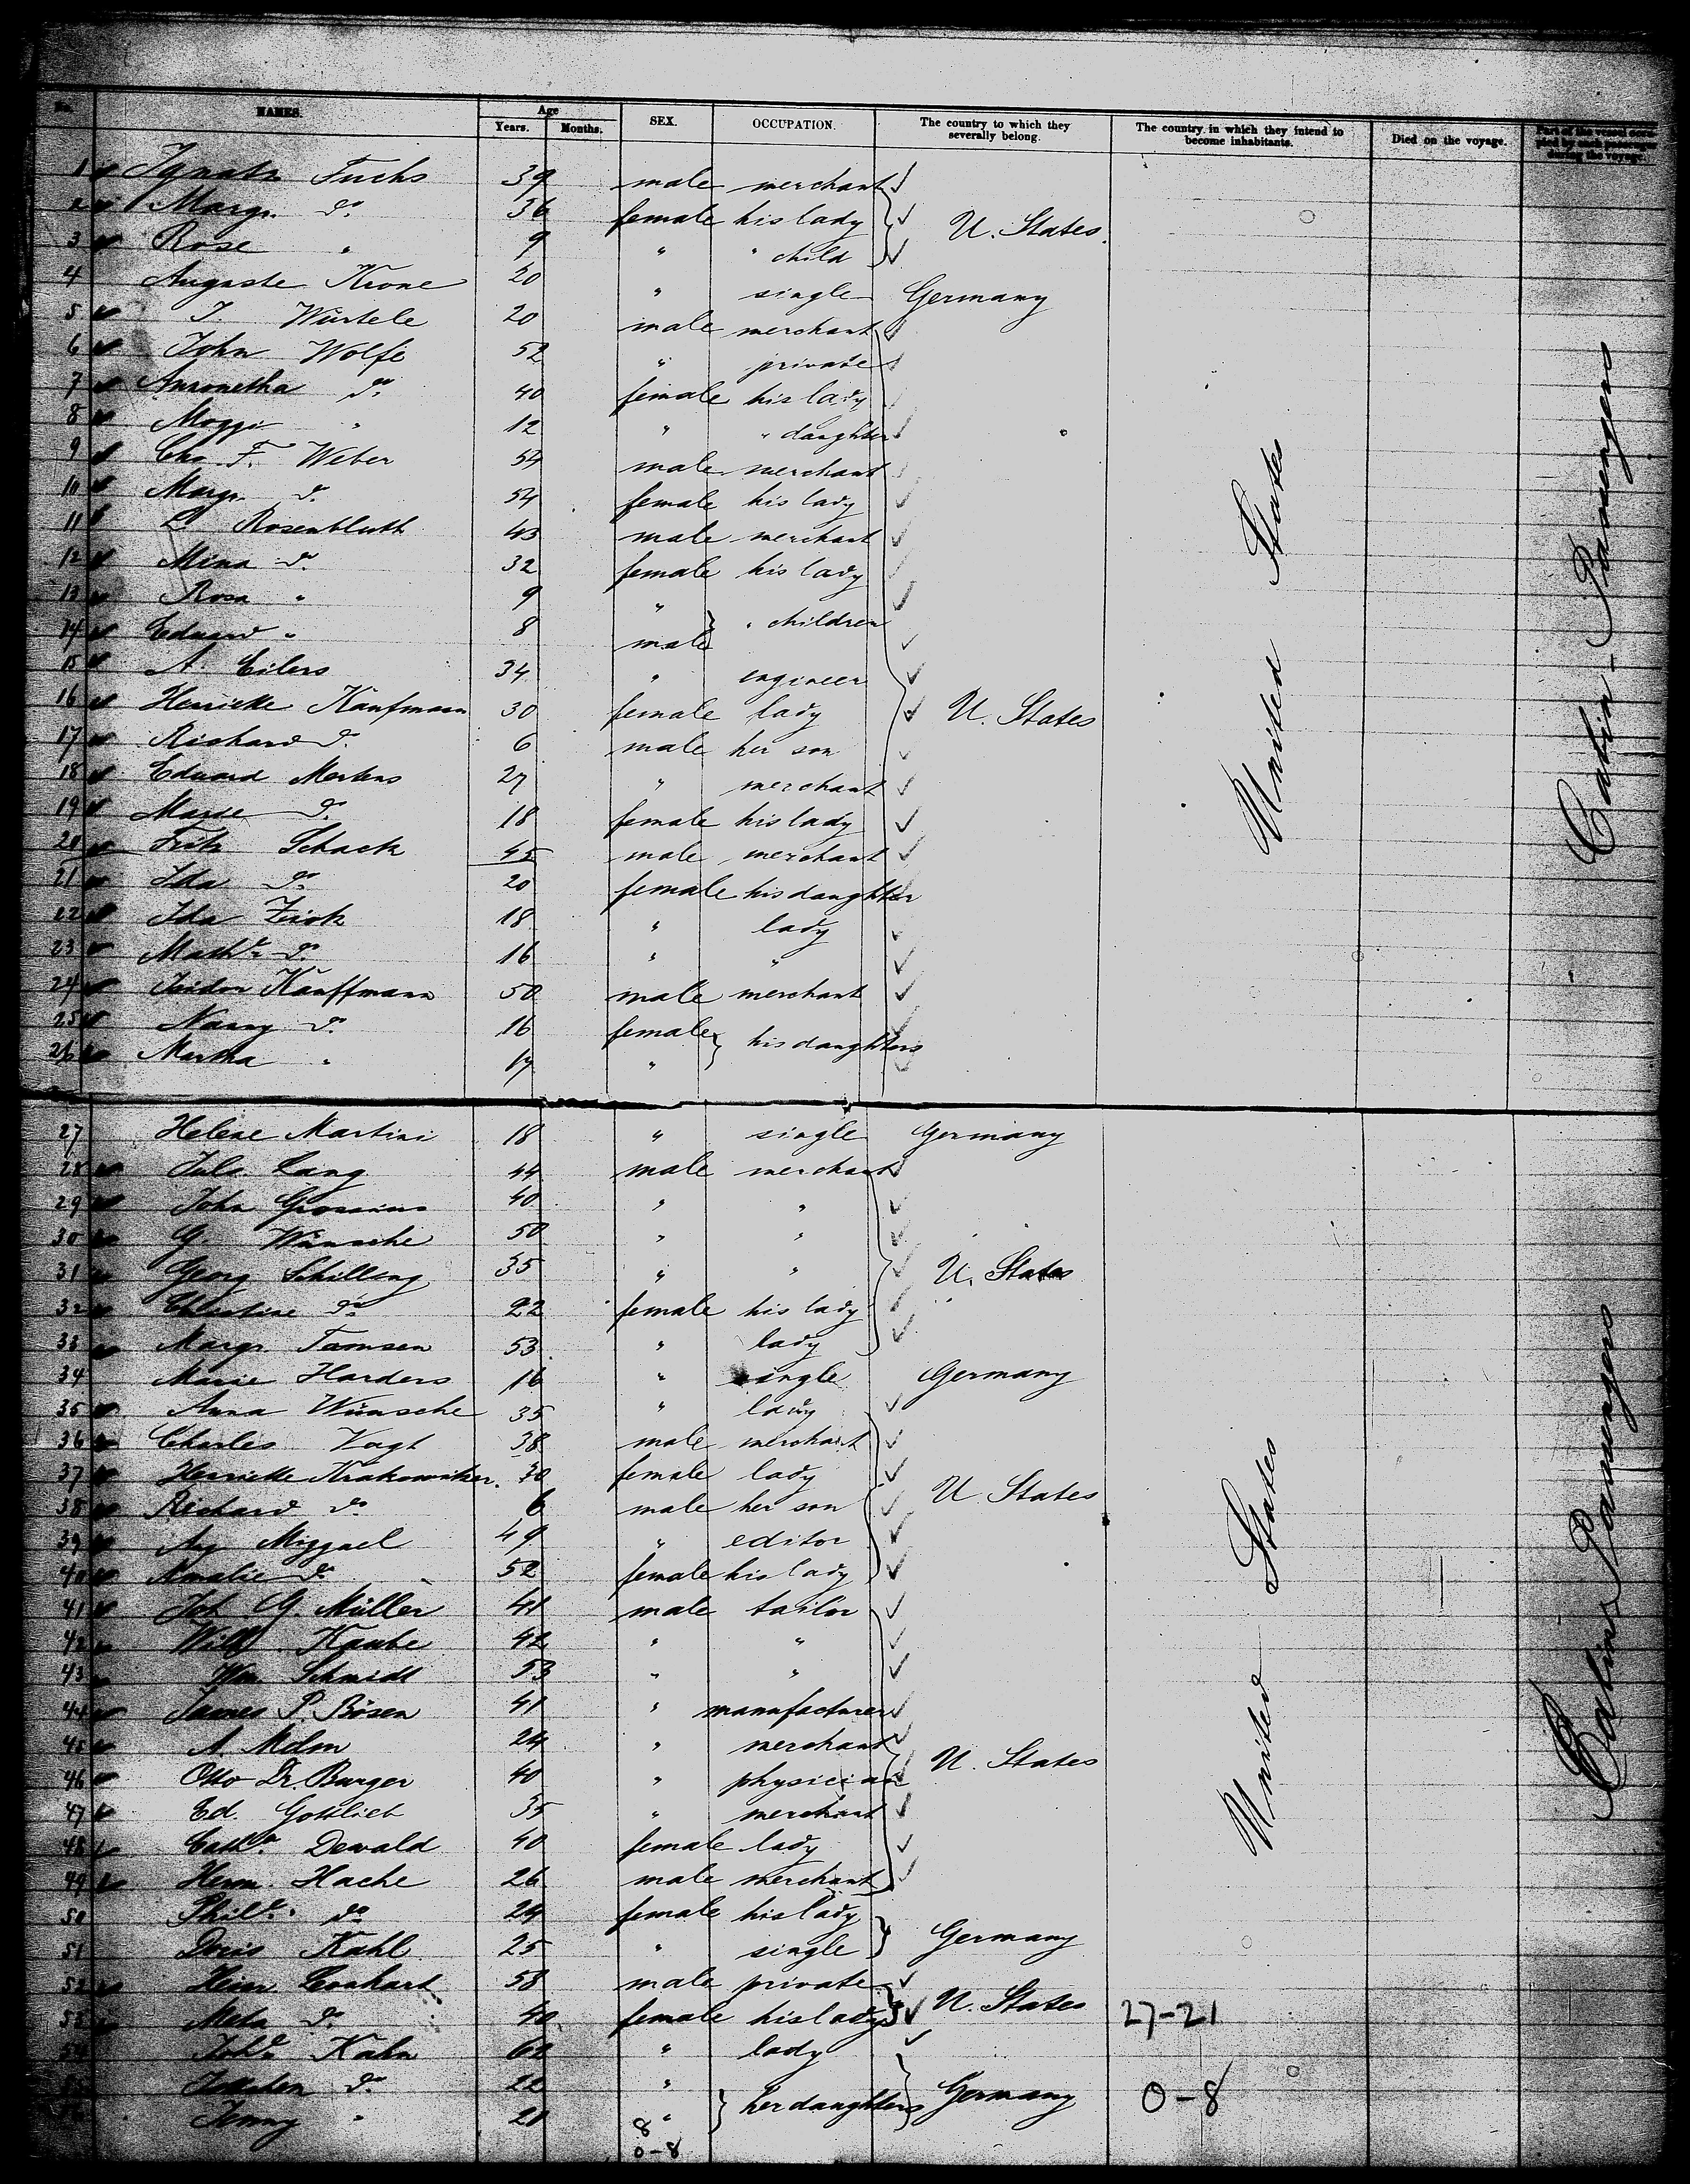 No. NAMES. Age Years. Months. SEX. OCCUPATION. The country to which they severally belong. The country in which they intend to become inhabitants. Died on the voyage. Part of the vessel occupied by each passenger during the voyage.
1 Ignatz Fuchs 39 male merchant
2 Margr. do. 36 female his lady U. States.
3 Rose " 9 " " child
4 Auguste Krone 20 " single Germany
5 J Würtele 20 male merchant
6 John Wolfe 52 " private
7 do. 40 female his lady
8 " 12 " " daughter
9 Chs. F. Weber 54 male merchant
10 Margr. do. 54 female his lady
11 L Rosenbluth 43 male merchant
12 Mina do. 32 female his lady
13 Rosa " 9 "
14 Eduard " 8 male " children
15 A. Eilers 34 " engineer
16 Henriette Kaufmann 30 female lady U. States
17 Richard do. 6 male her son
18 Eduard Mertens 27 " merchant
19 Marie do. 18 female his lady
20 Fritz Schack 45 male merchant
21 Ida do. 20 female his daughter
22 Ida 18 " lady
23 do. 16 " "
24 Isidor Kauffmann 50 male merchant
25 do. 16 female his daughters
26 Martha " 17 "
United States
Cabin - Passengers
27 Helene Martini 18 " single Germany
28 Jul. Lang 44 male merchant
29 John 40 " "
30 G. Wünsche 50 " "
31 Georg Schilling 35 " " U. States
32 Christine do. 22 female his lady
33 Margr. Tamsen 53 " lady
34 Marie Harders 16 " single Germany
35 Anna Wünsche 35 " lady
36 Charles Vogt 38 male merchant
37 Henriette 30 female lady U. States
38 Richard do. 6 male her son
39 49 " editor
40 Amalie do. 52 female his lady
41 Joh. G. Müller 41 male tailor
42 42 " "
43 Wm. Schmidt 53 " "
44 James P. Bösen 41 " manufacturer
45 A. 24 " merchant
46 Otto Dr. Burger 40 " physician U. States
47 Ed. Gottlieb 35 " merchant
48 Cath. Dewald 40 female lady
49 Herm. Hache 26 male merchant
50 do. 24 female his lady
51 Doris Kahl 25 " single Germany
52 58 male private
53 Meta do. 40 female his lady U. States 27-21
54 Kahn 62 " lady
55 do. 22 "
56 Jenny " 20 " her daughters Germany 0-8
8
0-8
United States
Cabin Passengers